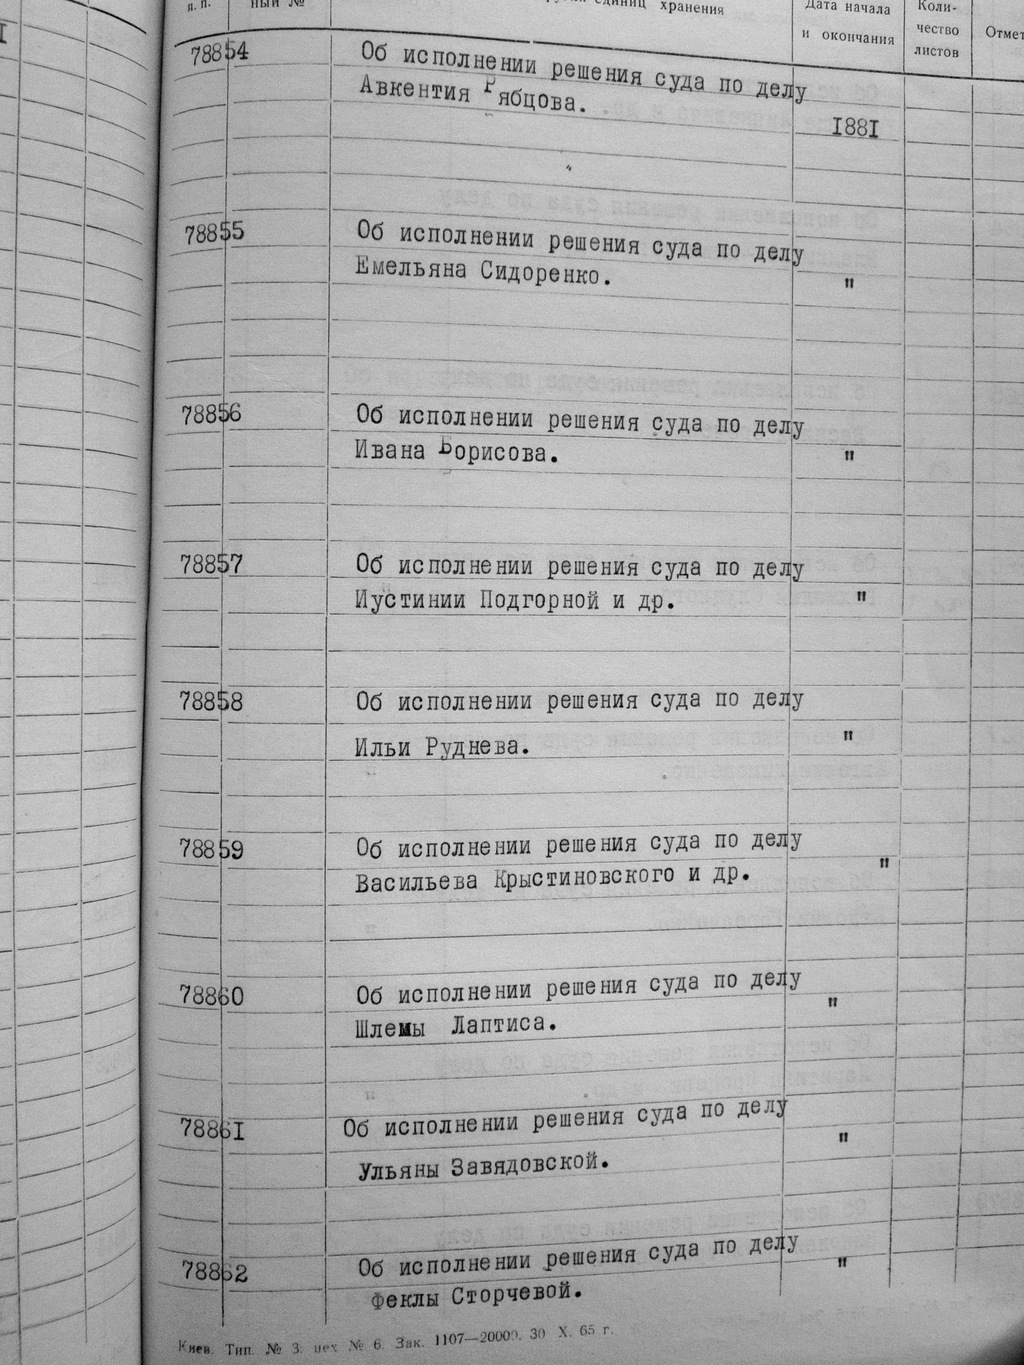 п. п.
ный №
единиц хранения
Дата начала
и окончания
Коли-
чество
листов
Отмет
78854 Об исполнении решения суда по делу
Авкентия Рябцова.
1881
78855 Об исполнении решения суда по делу
Емельяна Сидоренко. "
78856 Об исполнении решения суда по делу
Ивана Борисова. "
78857 Об исполнении решения суда по делу
Иустинии Подгорной и др. "
78858 Об исполнении решения суда по делу
Ильи Руднева. "
78859 Об исполнении решения суда по делу
Васильева Крыстиновского и др. "
78860 Об исполнении решения суда по делу
Шлемы Лаптиса. "
78861 Об исполнении решения суда по делу
Ульяны Завядовской. "
78862 Об исполнении решения суда по делу
Феклы Сторчевой. "
Киев. Тип. № 3. цех № 6. Зак. 1107—20000. 30 X. 65 г.